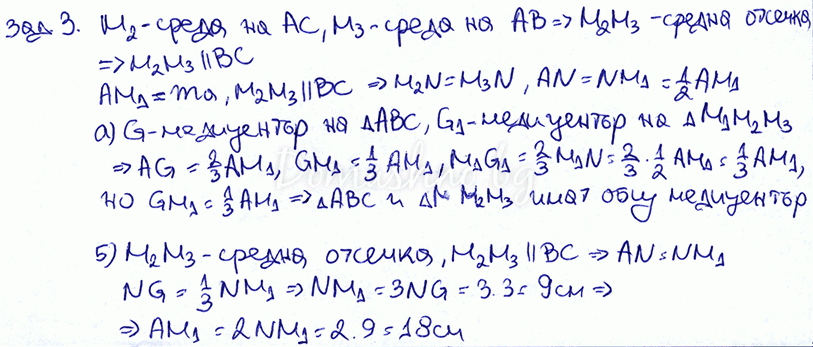 Зад 3. M₂-среда на AC, M₃-среда на AB => M₂M₃ -средна отсечка
=> M₂M₃ || BC
AM₁ = ma, M₂M₃ || BC => M₂N = M₃N, AN = NM₁ = 1/2 AM₁
а) G-медицентър на ΔABC, G₁-медицентър на Δ M₁M₂M₃
=> AG = 2/3 AM₁, GM₁ = 1/3 AM₁, M₁G₁ = 2/3 M₁N = 2/3 · 1/2 AM₁ = 1/3 AM₁,
но GM₁ = 1/3 AM₁ => ΔABC и ΔM M₂M₃ имат общ медицентър
Domashno.bg
б) M₂M₃ - средна отсечка, M₂M₃ || BC => AN = NM₁
NG = 1/3 NM₁ => NM₁ = 3NG = 3.3 = 9см =>
=> AM₁ = 2NM₁ = 2.9 = 18см